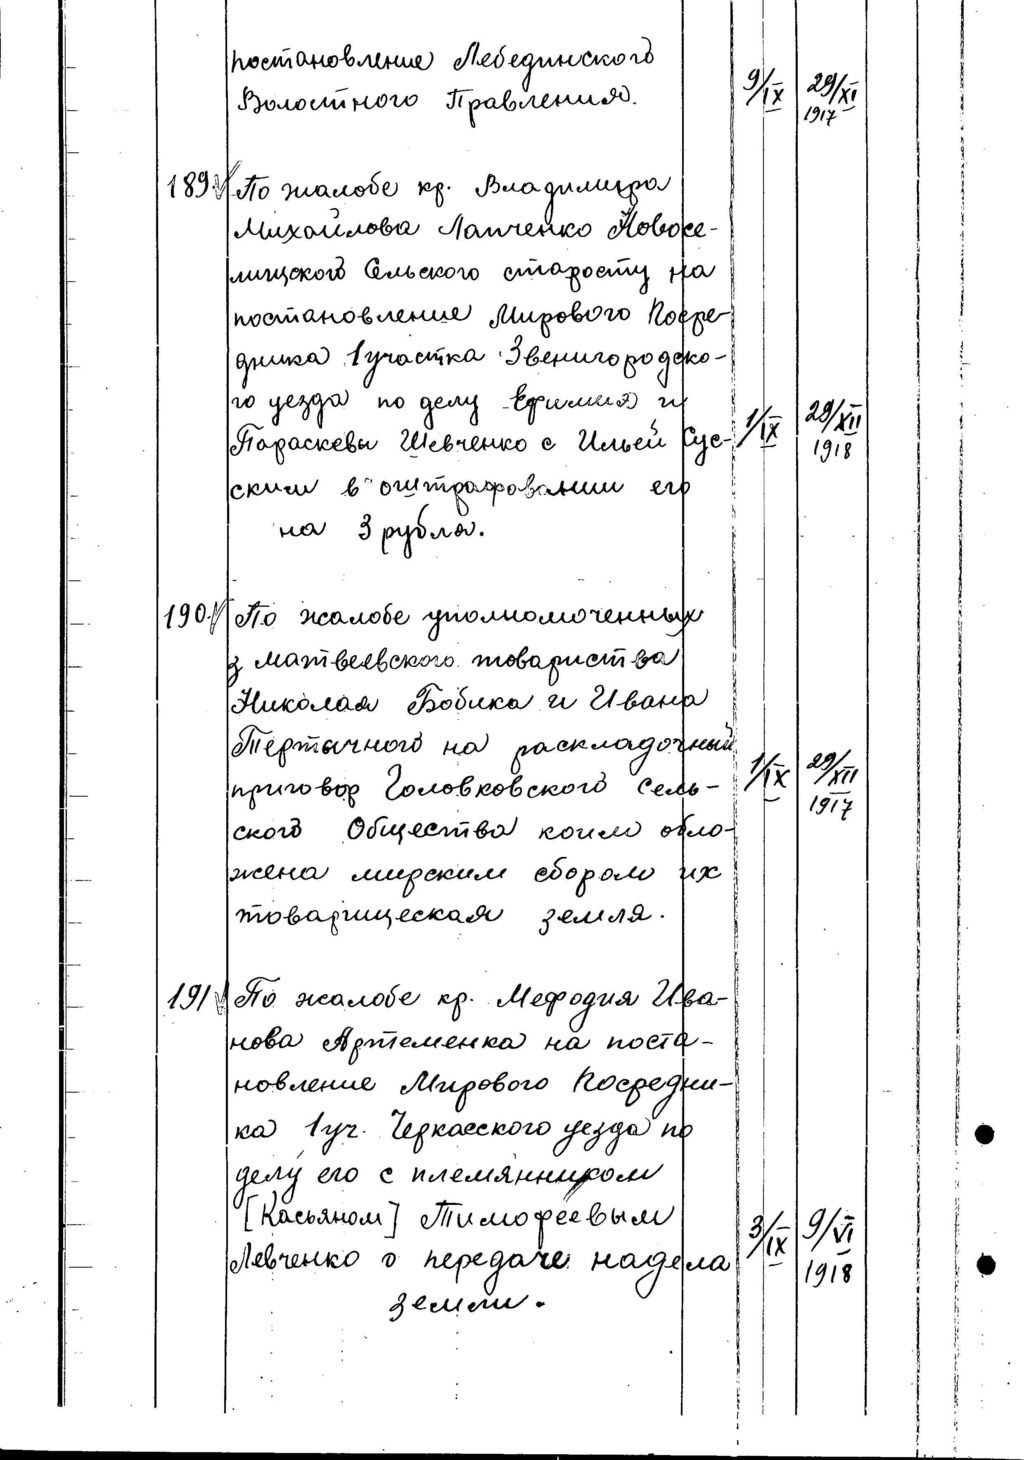 постановление Лебединского
Волостного Правления. 9/IX 29/XI 1917
189. По жалобе кр. Владимира
Михайлова Лапченко Новосе-
лицского Сельского старосту на
постановление Мирового Посре-
дника 1 участка Звенигородско-
го уезда по делу Ефимия и
Параскевы Шевченко с Ильей Сус- 1/IX 29/XII 1918
ским в оштрафовании его
на 3 рубля.
190. По жалобе уполномоченных
з матвеевского товариства
Николая Бобика и Ивана
Тертычного на раскладочный
приговор Головковского Сель- 1/IX 29/XII 1917
ского Общества коим обло-
жена мирским сбором их
товарищеская земля.
191 По жалобе кр. Мефодия Ива-
нова Артеменка на поста-
новление Мирового Посредни-
ка 1 уч. Черкасского уезда по
делу его с племянником
[Касьяном] Тимофеевым
Левченко о передаче надела 3/IX 9/VI 1918
земли.